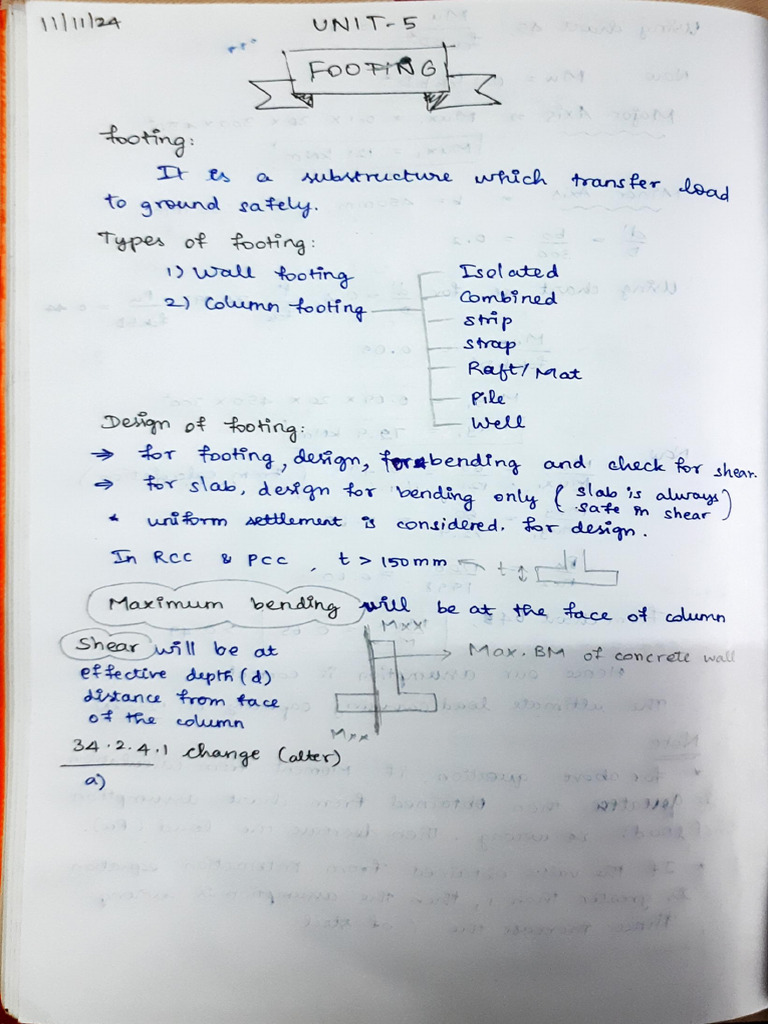 11/11/24
UNIT-5
FOOTING
footing:
It is a substructure which transfer load
to ground safely.
Types of footing:
1) Wall footing
2) Column footing
Isolated
Combined
Strip
Strap
Raft/Mat
Pile
Well
Design of footing:
→ for footing, design, for bending and check for shear.
→ for slab, design for bending only (slab is always
safe in shear)
* uniform settlement is considered. for design.
In RCC & PCC, t > 150mm t
Maximum bending will be at the face of column
Shear will be at
effective depth (d)
distance from face
of the column
Mxx
Max. BM of concrete wall
Mxx
34.2.4.1 change (alter)
a)